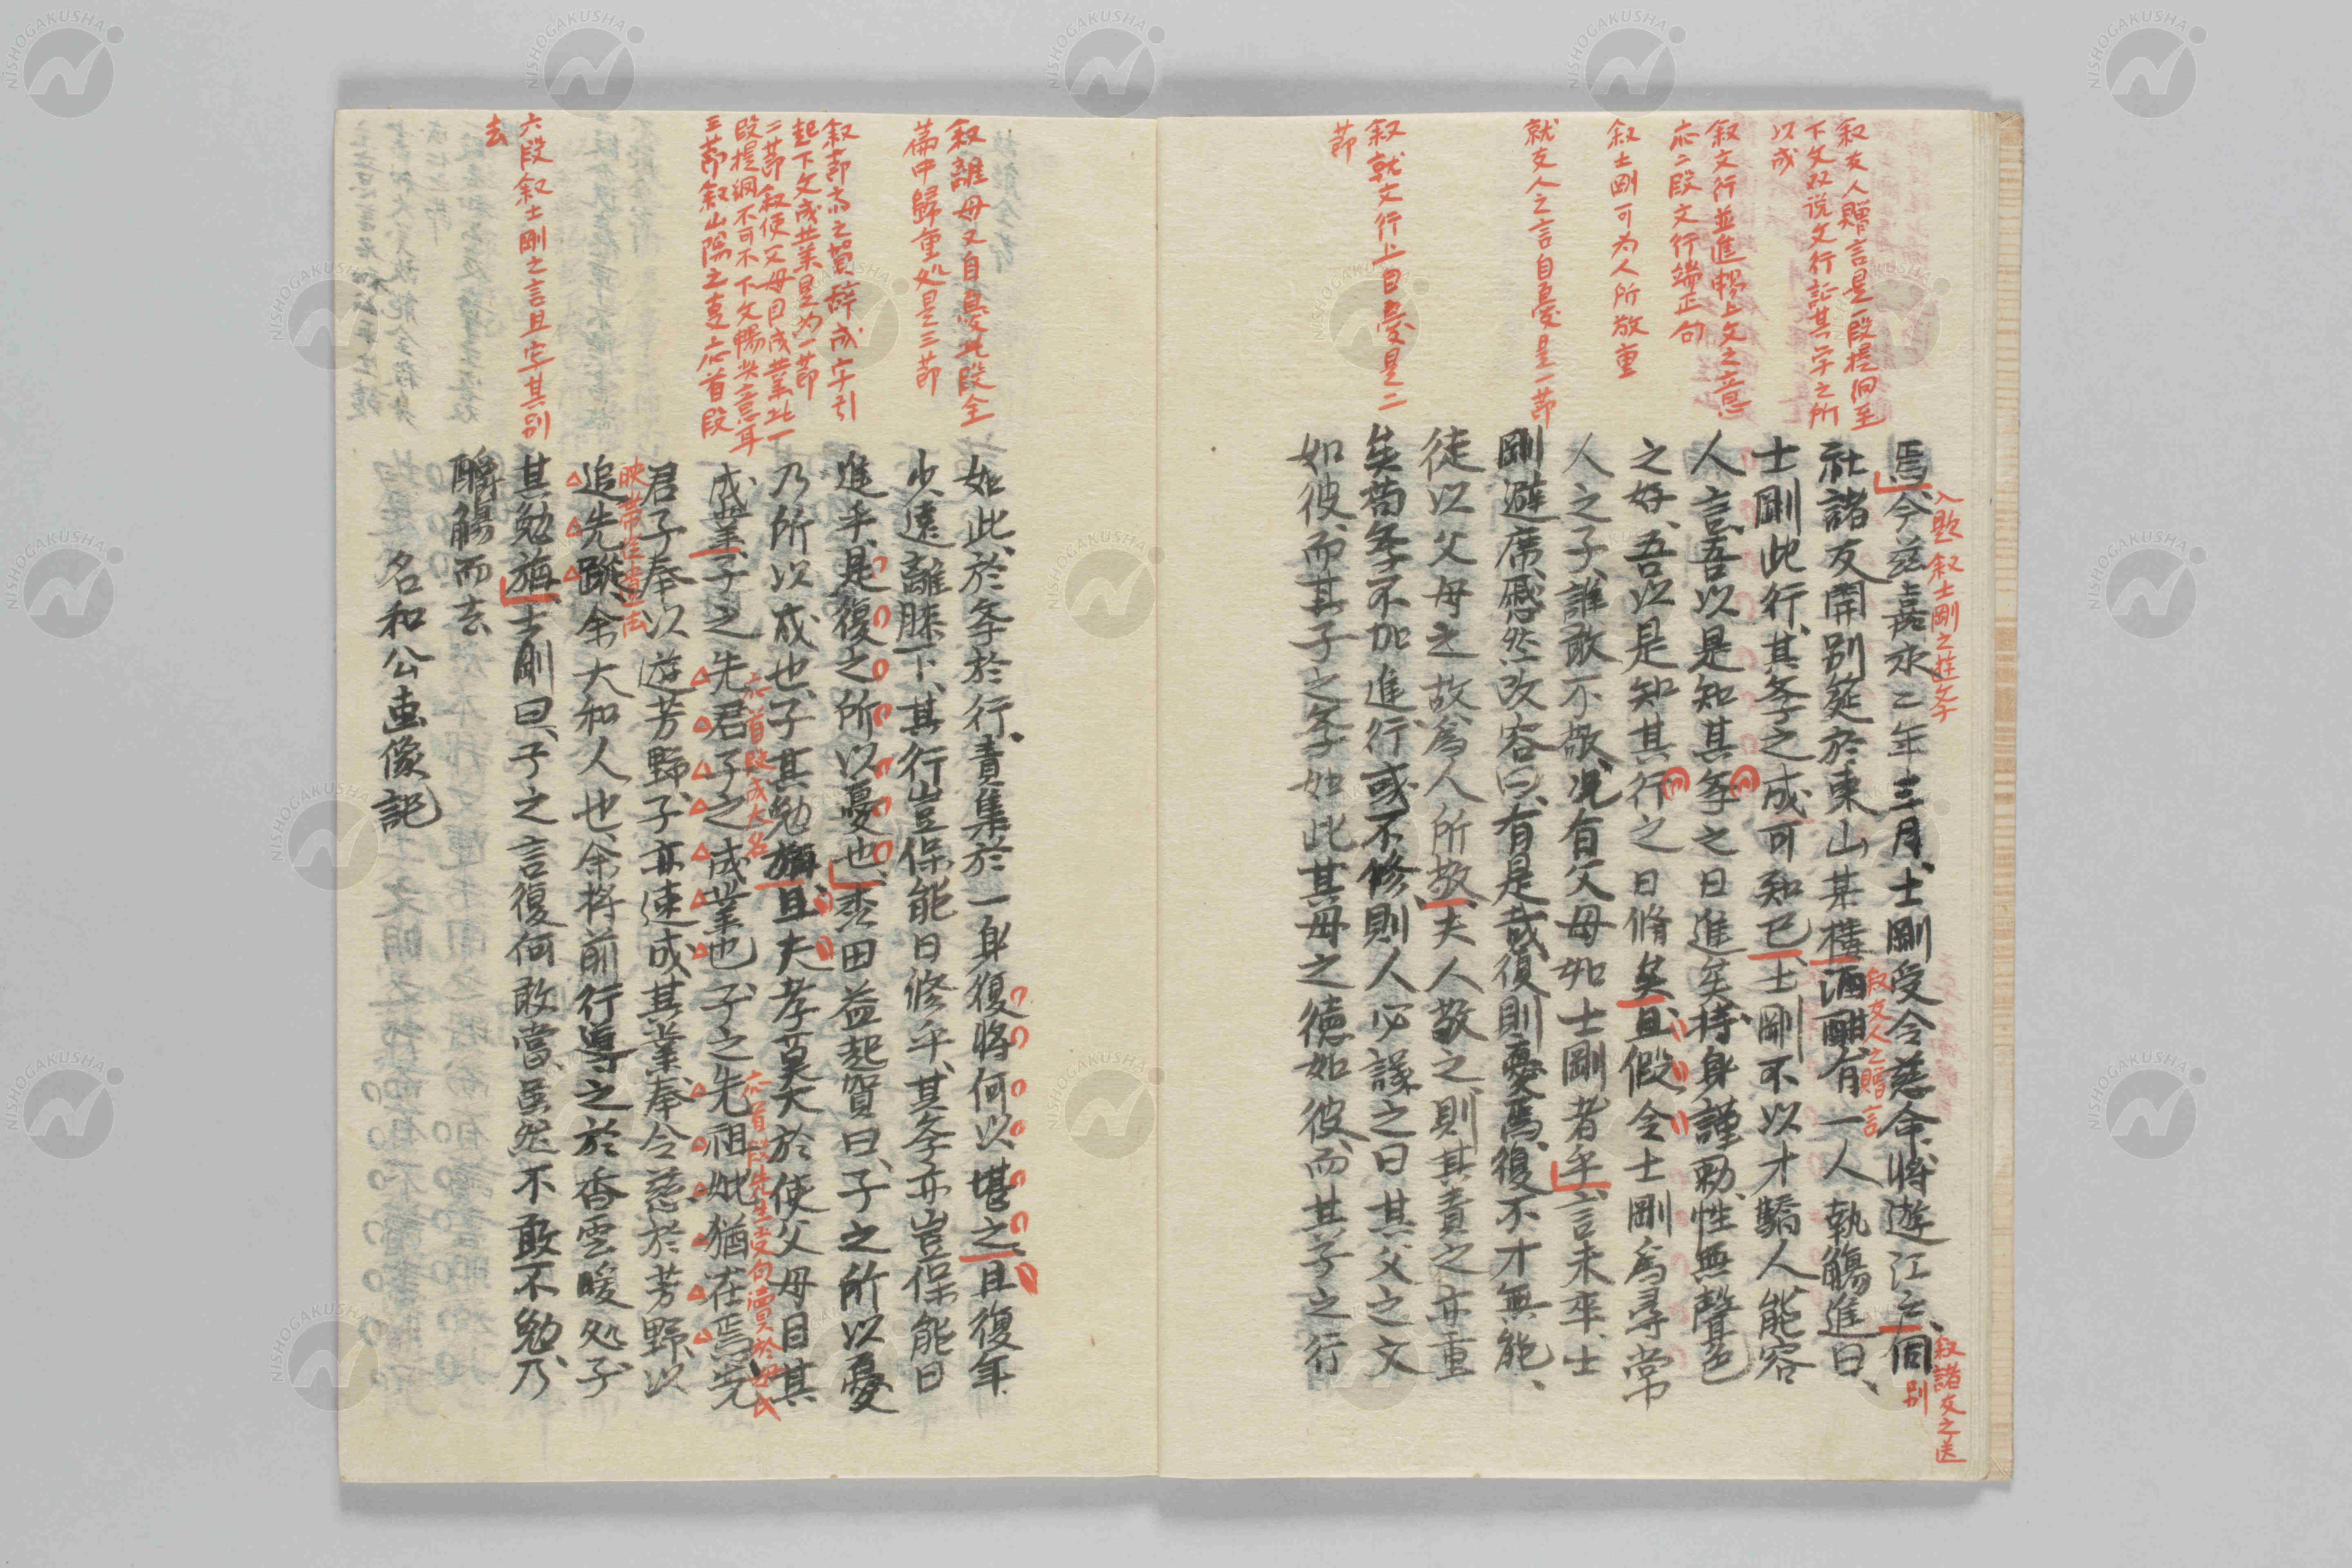 焉、今茲嘉永二年三月、士剛受令慈命、將遊江戸、同
社諸友開別筵於東山某樓、酒酣、有一人執觴進曰、
士剛此行、其孝之成可知已、士剛不以才驕人、能容
人言、吾以是知其孝之日進矣、持身謹勅、性無聲色
之好、吾以是知其行之日脩矣、且假令士剛爲尋常
人之子、誰敢不敬、况有父母如士剛者乎、言未卒、士
剛避席、慼然改容曰、有是哉、復則憂焉、復不才無能、
徒以父母之故、爲人所敬、夫人敬之、則其責之亦重
矣、苟孝不加進、行或不修、則人必議之曰、其父之文
如彼、而其子之孝如此、其母之徳如彼、而其子之行
如此、於孝於行、責集於一身、復將何以堪之、且復年
少、遠離膝下、其行豈保能日修乎、其孝亦豈保能日
進乎、是復之所以憂也、柰田益起賀曰、子之所以憂
乃所以成也、子其勉旃、且夫孝莫大於使父母目其
成業、子之先君子之成業也、子之先祖妣猶在焉、先
君子奉以遊芳野、子亦速成其業、奉令慈於芳野、以
追先蹤、余大和人也、余將前行導之於香雲暖処、子
其勉旃、士剛曰、子之言復何敢當、虽然不敢不勉、乃
釂觴而去
名和公画像記
入題叙士剛之遊孝
叙諸友之送
別
叙友人之贈言
叙友人贈言是一段提綱至
下文双説文行証其学之所
以成
叙文行並進暢上文之意
応二段文行端正句
叙士剛可为人所敬重
就友人之言自憂是一節
叙就文行上自憂是二
節
叙離母又自憂此段全
篇中歸重処是三節
叙節斎之賀辞成字引
起下文成業是为一節
二節叙使父母目成業此一
段提綱不可不下文暢共意耳
三節叙山陽之支応首段
応首段成大名
応首段先生支句讀貫於母氏
映帯佳遣去
六段叙士剛之言且字其別
去